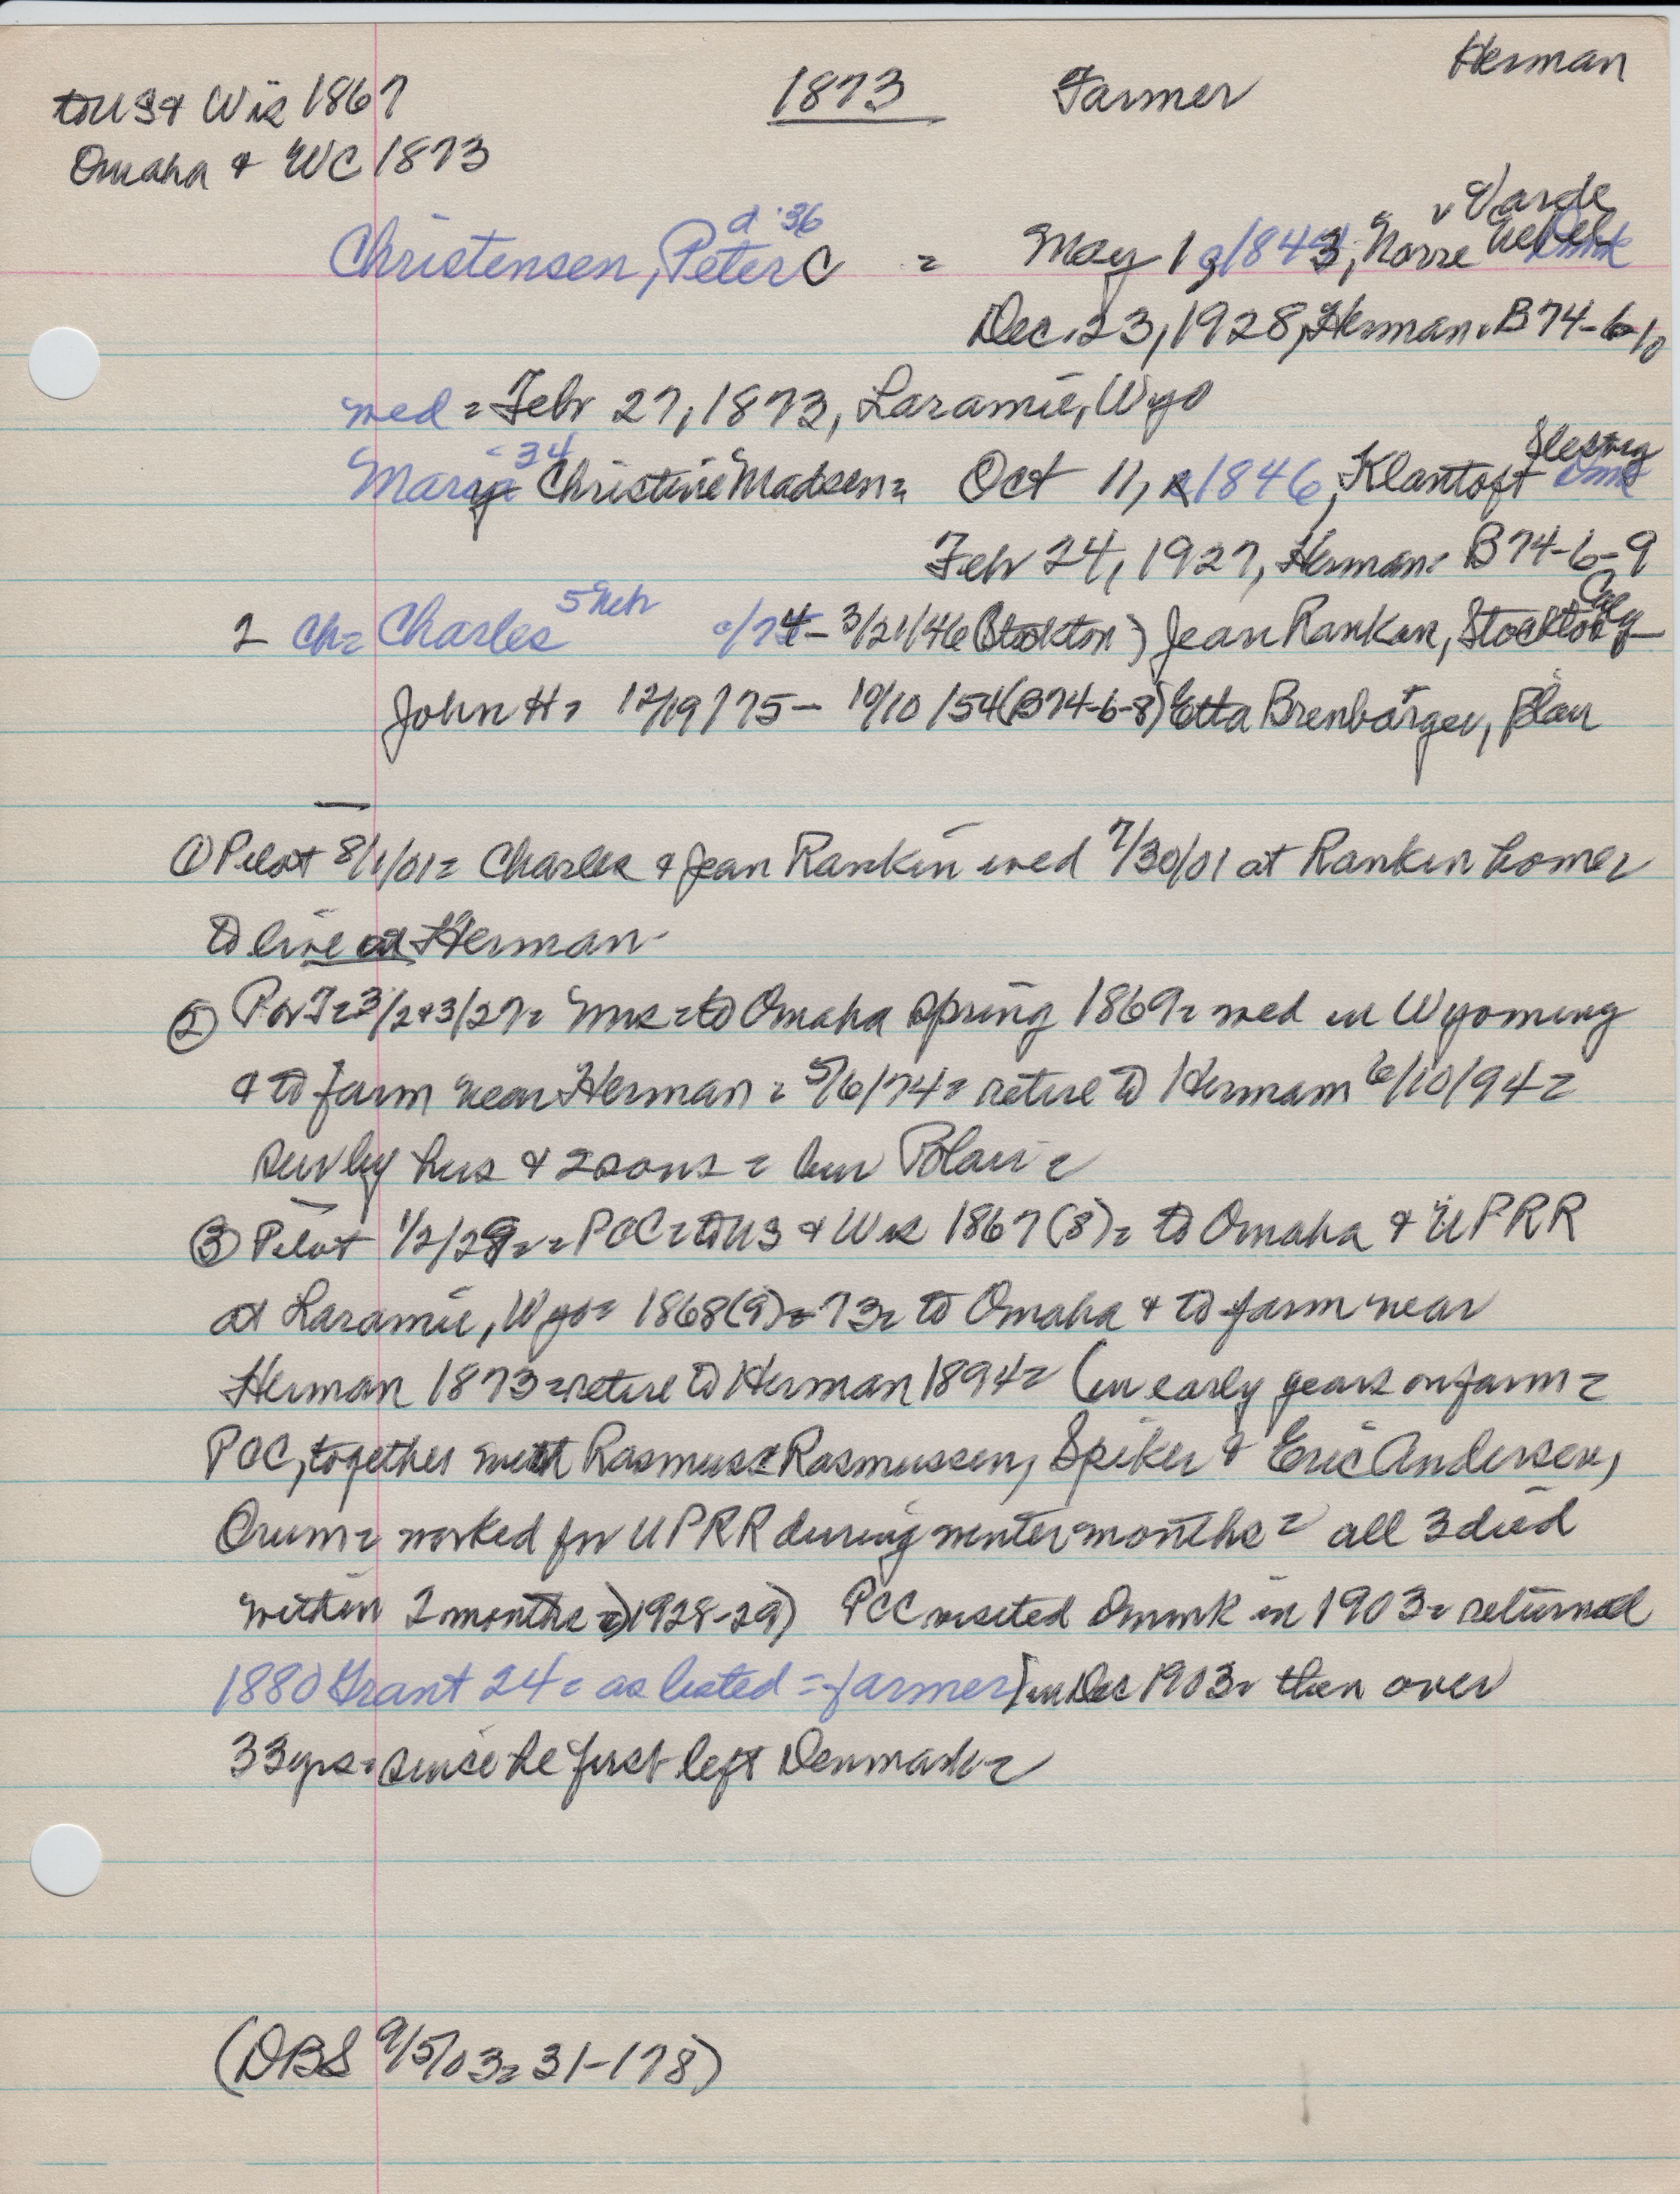 Herman
to US & Wis 1867 1873 Farmer
Omaha & WC 1873
v Varde
d '36
Christensen, Peter C = May 1, 1843, Norre
Dec. 23, 1928, Herman. B74-6-10
wed = Febr 27, 1873, Laramie, Wyo
34 Slesvig
Mary Christine Madsen = Oct 11, 1846, Klantoft Dmk
Feb 24, 1927, Herman = B74-6-9
2 Ch = Charles 5 Neb c/74 - 3/21/46 (Stockton) Jean Rankin, Stockton
John H = 12/19/75 - 10/10/54 (B74-6-8) Etta Brenbarger, Blair
① Pilot 8/1/01 = Charles & Jean Rankin wed 7/30/01 at Rankin home =
to live at Herman -
② P & T = 3/2 & 3/27 = Mrs = to Omaha spring 1869 = wed in Wyoming
& to farm near Herman = 5/6/74 = retire to Herman 6/10/94 =
surv by hus & 2 sons = bur Blair =
③ Pilot 1/2/29 = = PCC = to US & Wis 1867 (8) = to Omaha & UPRR
at Laramie, Wyo = 1868 (9) = 73 = to Omaha & to farm near
Herman 1873 = retire to Herman 1894 = (in early years on farm =
PCC, together with Rasmus Rasmussen, Spiker & Eric Andersen,
Orum = worked for UPRR during winter months = all 3 died
within 2 months = ) 1928-29) PCC visited Dnmrk in 1903 = returned
1880 Grant 24 = as listed = farmer) in Dec 1903 = then over
33 yrs = since he first left Denmark =
(DBS 9/5/03 = 31-178)